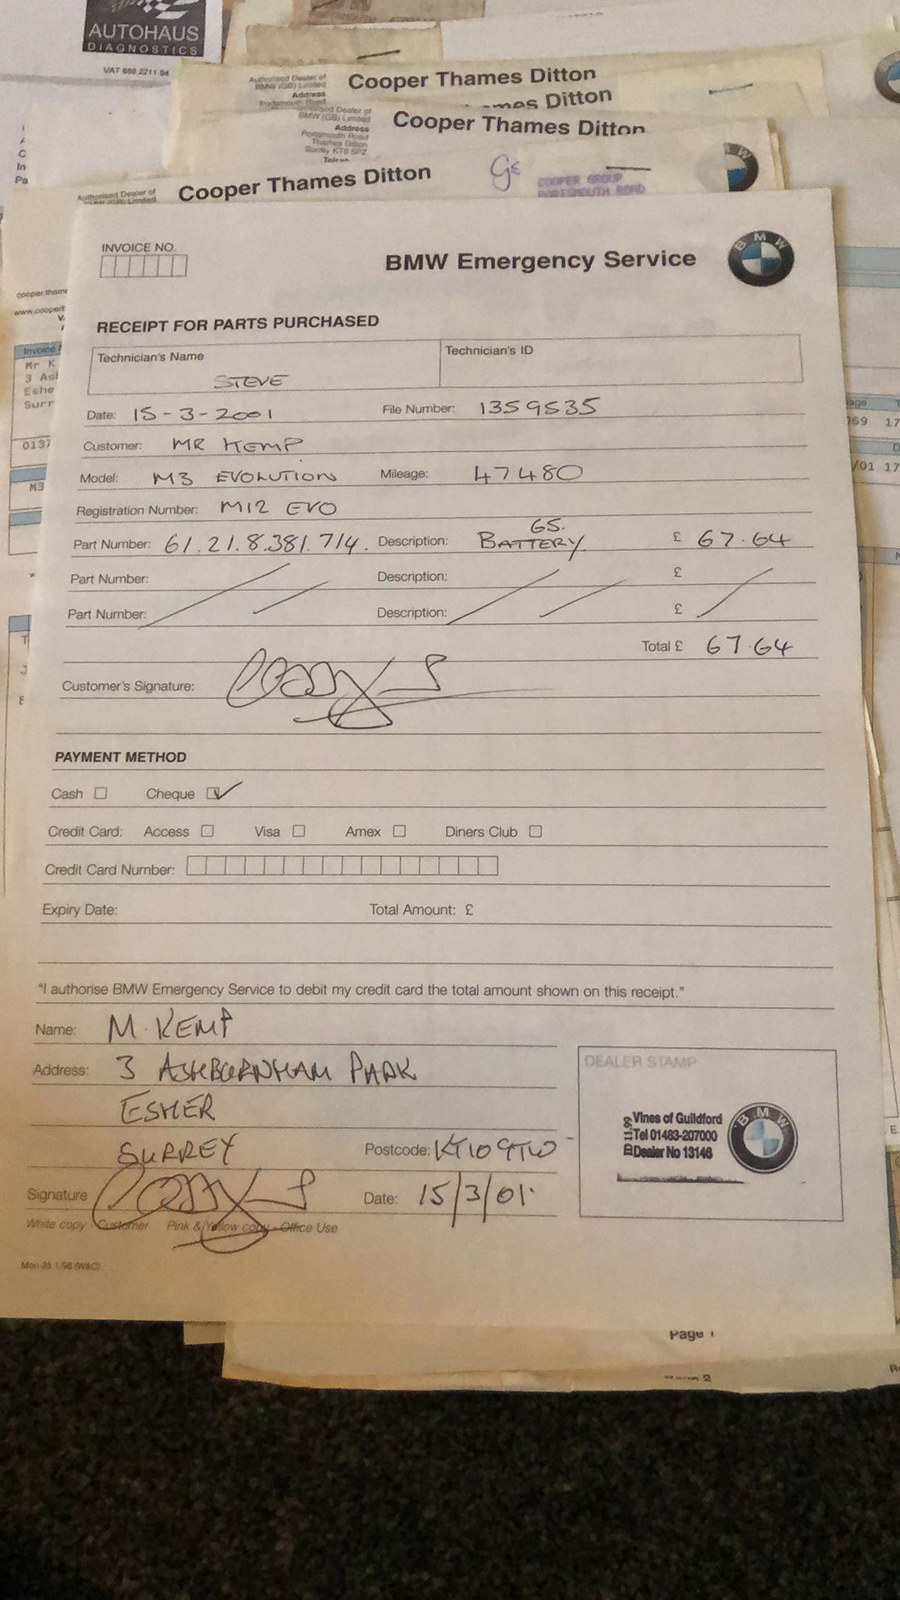 AUTOHAUS
DIAGNOSTICS
Authorised Dealer of
BMW (GB) Limited
Address
Portsmouth Road
Cooper Thames Ditton
mes Ditton
Authorised Dealer of
BMW (GB) Limited
Address
Portsmouth Road
Thames Ditton
Cooper Thames Ditton
Authorised Dealer of
Cooper Thames Ditton
COOPER GROUP
PORTSMOUTH ROAD
INVOICE NO.
BMW Emergency Service
BMW
RECEIPT FOR PARTS PURCHASED
Technician's Name
STEVE
Technician's ID
Date: 15-3-2001 File Number: 1359535
Customer: MR KEMP
Model: M3 EVOLUTION Mileage: 47480
Registration Number: M12 EVO
Part Number: 61.21.8.381.714. Description: 65. BATTERY £ 67.64
Part Number: Description: £
Part Number: Description: £
Total £ 67.64
Customer's Signature:
PAYMENT METHOD
Cash Cheque
Credit Card: Access Visa Amex Diners Club
Credit Card Number:
Expiry Date: Total Amount: £
"I authorise BMW Emergency Service to debit my credit card the total amount shown on this receipt."
Name: M. KEMP
Address: 3 ASHBURNHAM PARK
ESHER
SURREY Postcode: KT10 9TW
Signature Date: 15/3/01.
White copy - Customer Pink & Yellow copy - Office Use
DEALER STAMP
Vines of Guildford
Tel 01483-207000
Dealer No 13146
BMW
Page 1